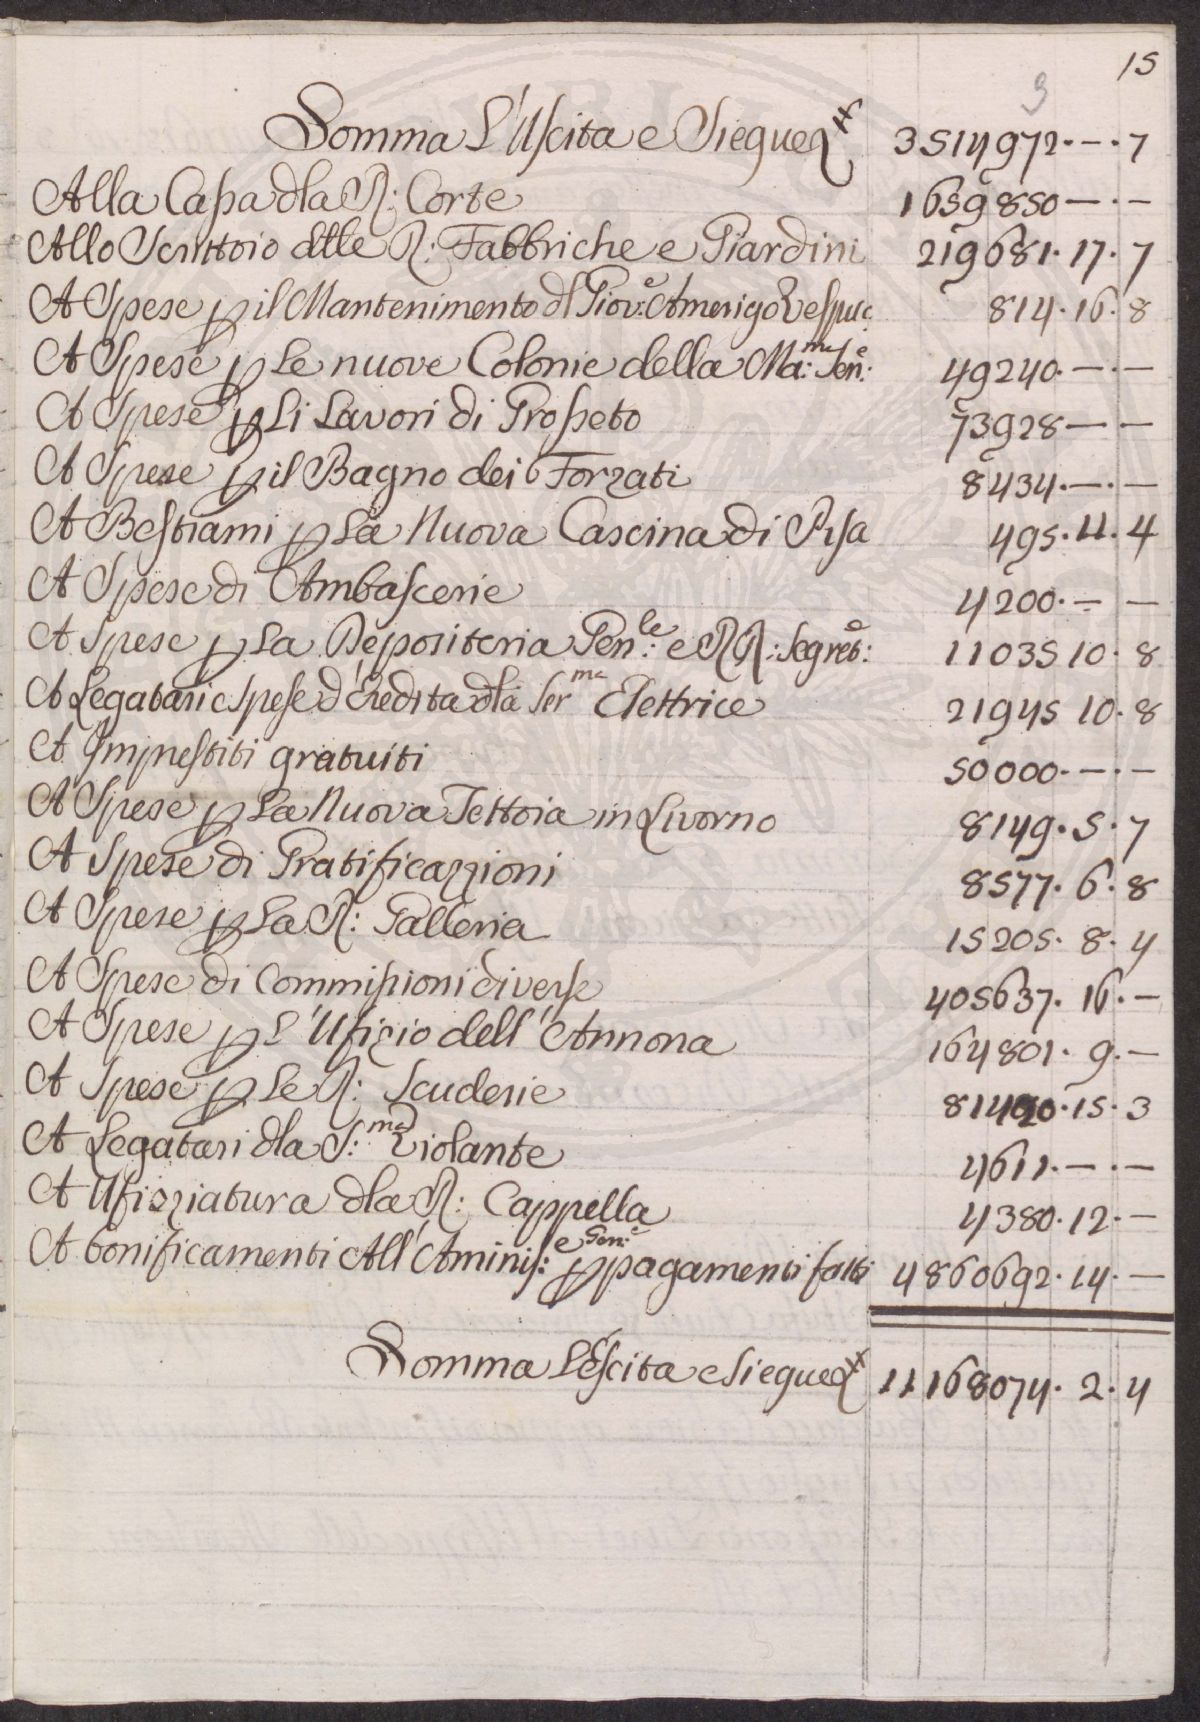 15
9
Somma L'Uscita e Siegue 3514972.—.7
Alla Cassa dla R: Corte 1659850—.—
Allo Scrittoio dlle R: Fabbriche e Giardini 219681.17.7
A Spese p il Mantenimento dl Giov:e Amerigo Vespuc: 814.16.8
A Spese p Le nuove Colonie della Ma:ma Sen:e 49240.—.—
A Spese p Li Lavori di Grosseto 73928—.—
A Spese p il Bagno dei Forzati 8434.—.—
A Bestiami p La Nuova Cascina di Pisa 495.11.4
A Spese di Ambascerie 4200.— —
A Spese p La Depositeria Gen:le e RR: Segret:e 11035 10.8
A Legatari e spese d'Eredita dla Ser ma Elettrice 21945 10.8
A Imprestiti gratuiti 50000.—.—
A Spese p La Nuova Tettoia in Livorno 8149.5.7
A Spese di Gratificazzioni 8577.6.8
A Spese p La R: Galleria 15205.8.4
A Spese di Commissioni diverse 405637.16.—
A Spese p L'Ufizio dell'Annona 164801.9.—
A Spese p Le R: Scuderie 81420.15.3
A Legatari dla S:ma Violante 4611.—.—
A Ufizziatura dla R: Cappella 4380.12.—
A bonificamenti All'Aminis: e Gen:e p pagamenti fatti 4860692.14.—
Somma L'Escita e Siegue 11168074.2.4